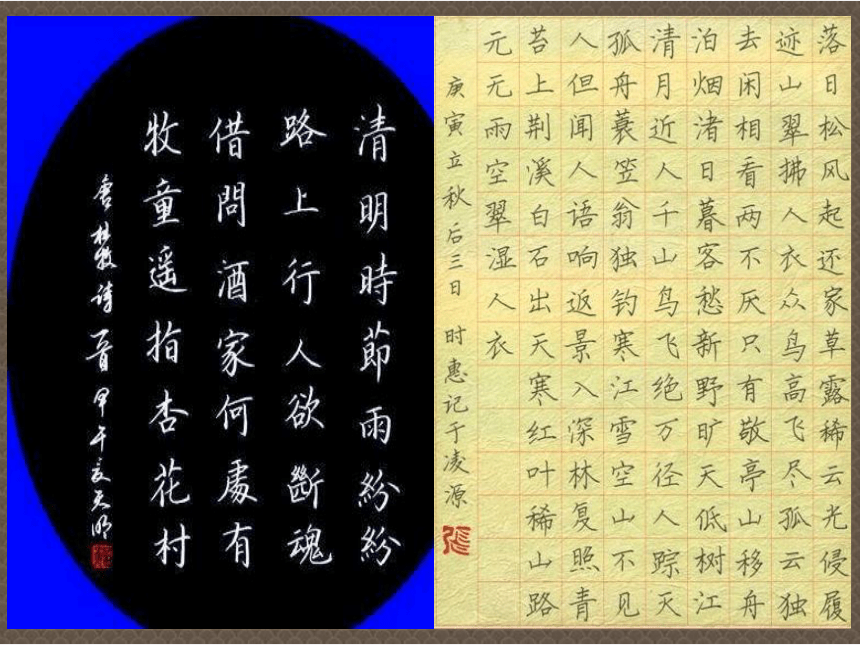 清明時節雨紛紛
路上行人欲斷魂
借問酒家何處有
牧童遥指杏花村
唐杜牧詩一首甲午
落日松风起还家草露稀云光侵履
迹山翠拂人衣众鸟高飞尽孤云独
去闲相看两不厌只有敬亭山移舟
泊烟渚日暮客愁新野旷天低树江
清月近人千山鸟飞绝万径人踪灭
孤舟蓑笠翁独钓寒江雪空山不见
人但闻人语响返景入深林复照青
苔上荆溪白石出天寒红叶稀山路
元无雨空翠湿人衣
庚寅立秋后三日 时惠记于凌源